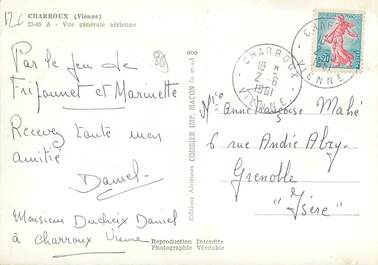 126
CHARROUX (Vienne)
23-65 A - Vue générale aérienne
Par le jeu de
Fripounet et Marinette
Recevez toute mon
amitié
Daniel
Monsieur Ducheix Daniel
à Charroux Vienne
Reproduction Interdite
Photographie Véritable
Editions Aériennes COMBIER IMP. MACON (S.-et-L.)
CHARROUX
18 H
2-6
1961
VIENNE
0,20
Mlle Anne Françoise Mahé
6 rue André Abry
Grenoble
"Isère"